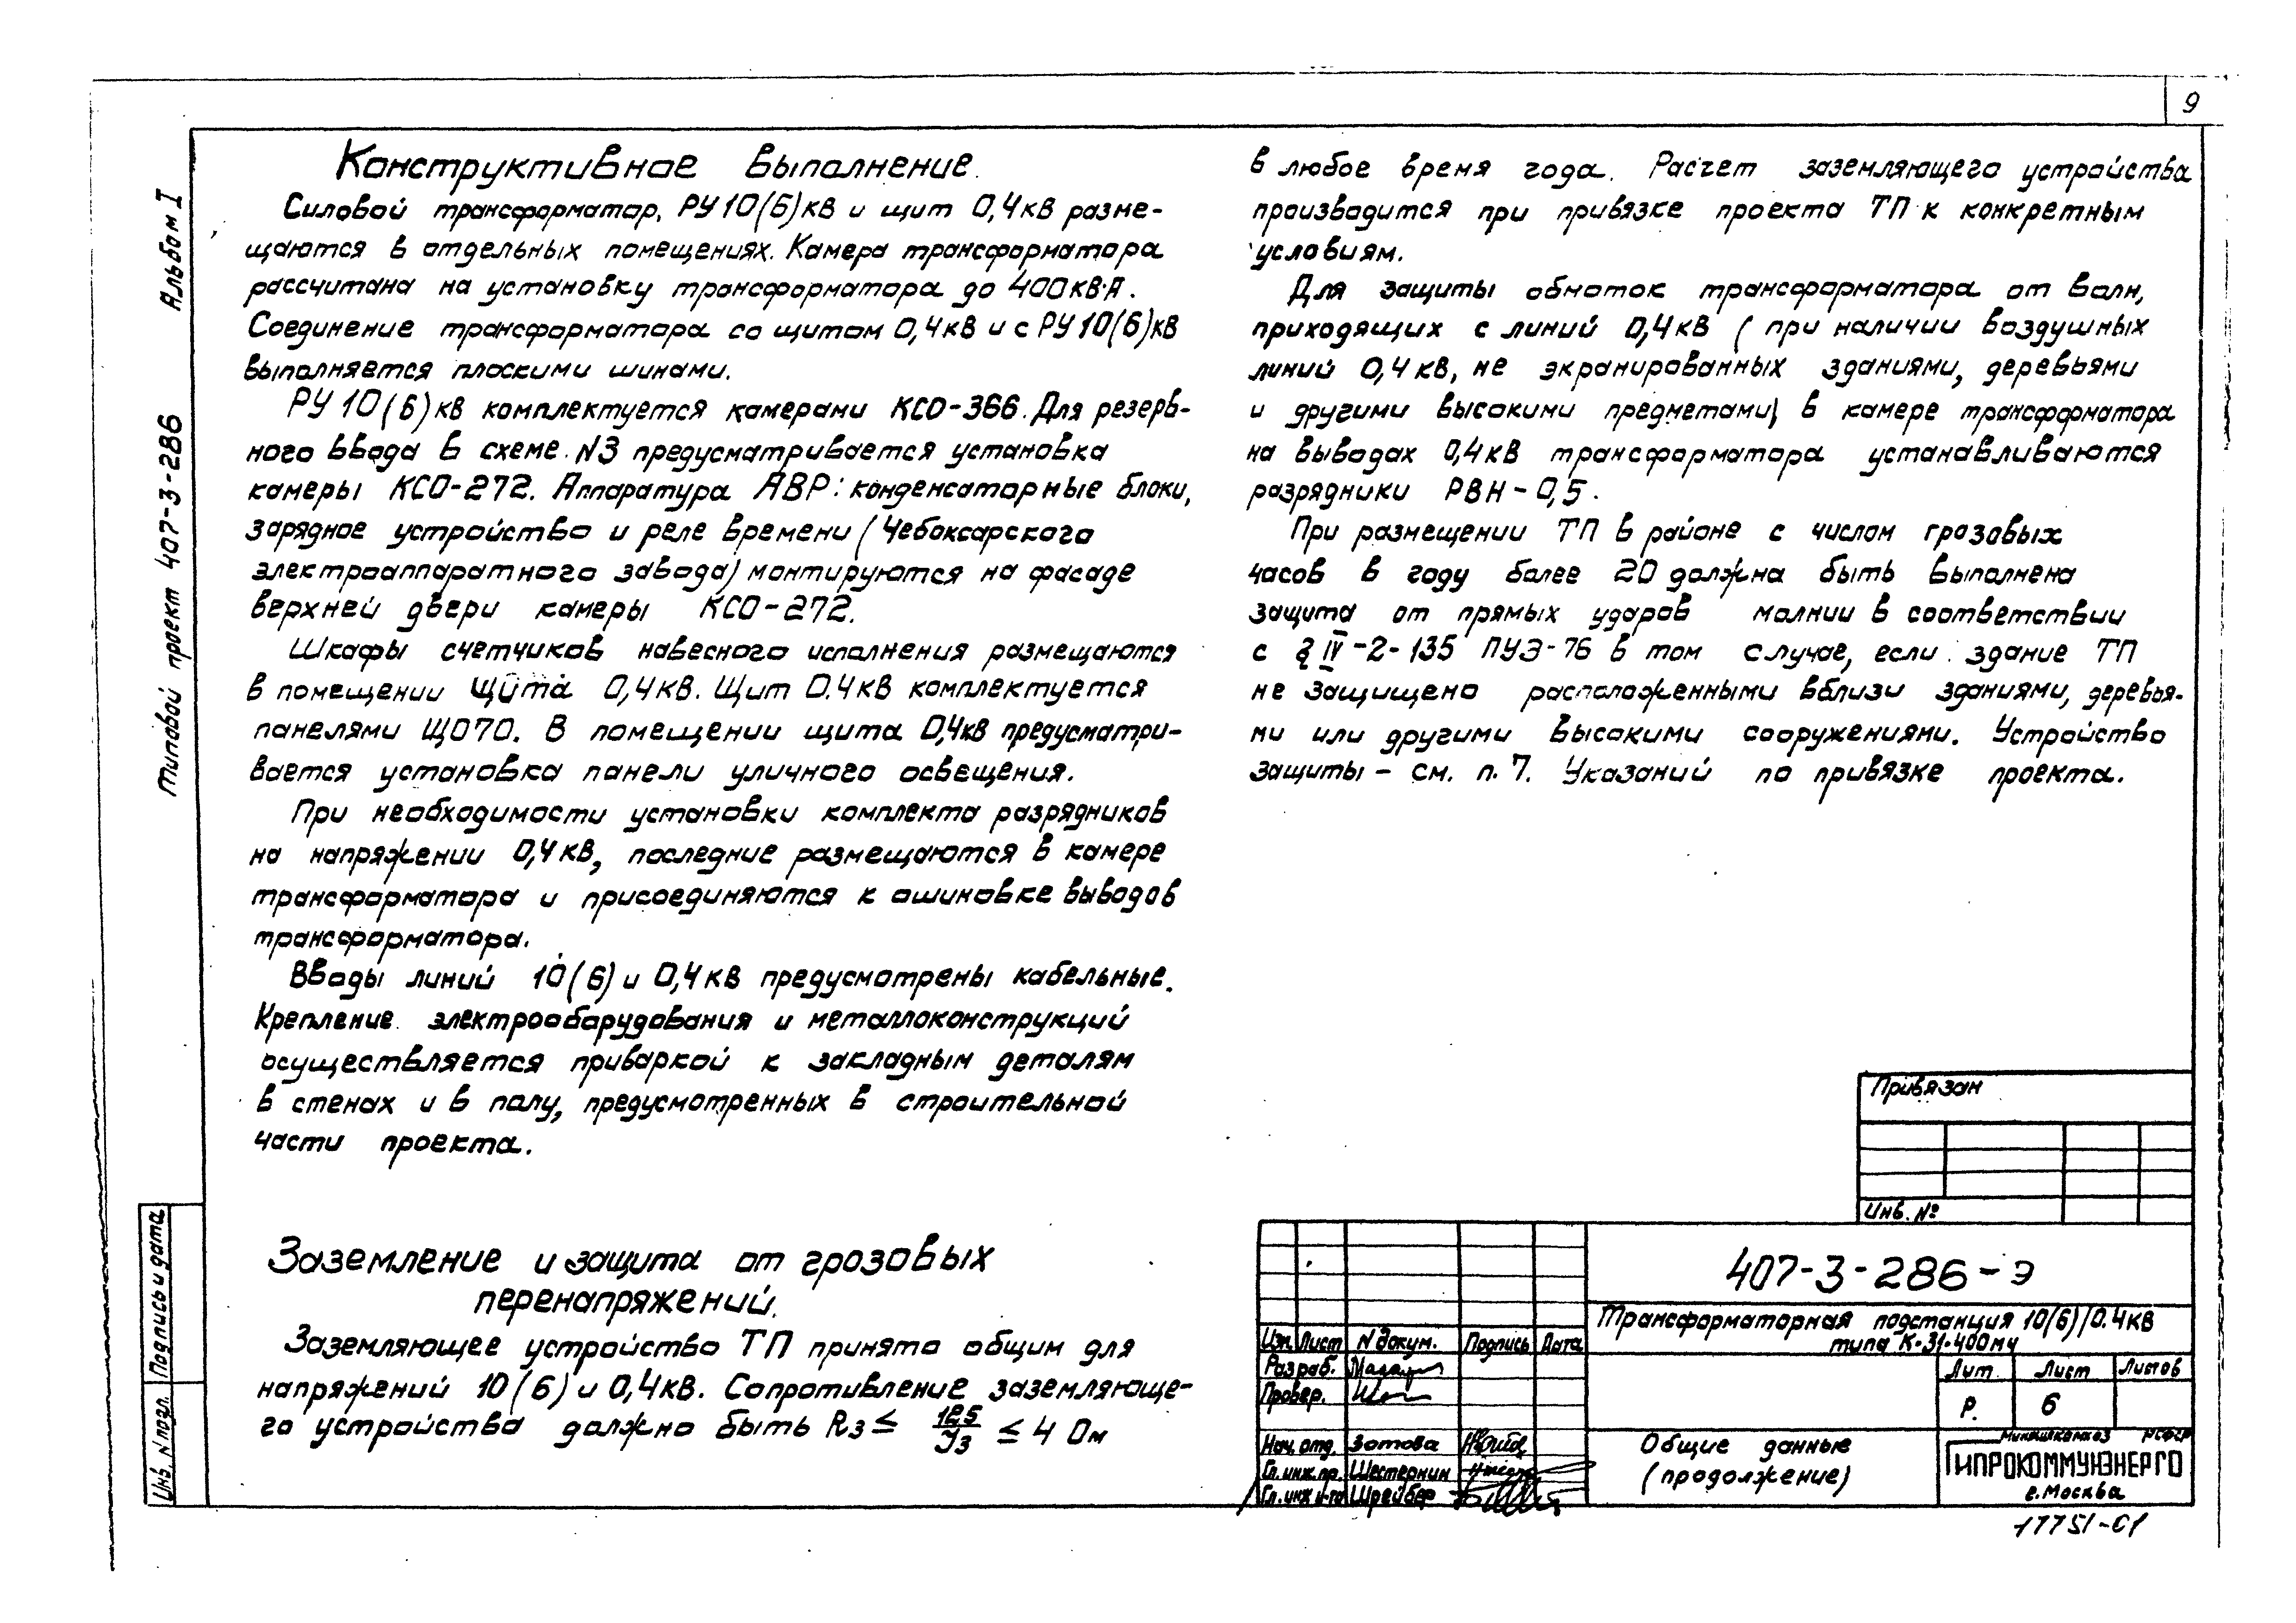 9
Альбом I
Типовой проект 407-3-286
Конструктивное выполнение.
Силовой трансформатор, РУ 10(6)кВ и щит 0,4кВ разме-
щаются в отдельных помещениях. Камера трансформатора
рассчитана на установку трансформатора до 400кВ·А.
Соединение трансформатора со щитом 0,4кВ и с РУ 10(6)кВ
выполняется плоскими шинами.
РУ 10(6)кВ комплектуется камерами КСО-366. Для резерв-
ного ввода в схеме N3 предусматривается установка
камеры КСО-272. Аппаратура АВР: конденсаторные блоки,
зарядное устройство и реле времени (Чебоксарского
электроаппаратного завода) монтируются на фасаде
верхней двери камеры КСО-272.
Шкафы счетчиков навесного исполнения размещаются
в помещении щита 0,4кВ. Щит 0.4кВ комплектуется
панелями ЩО70. В помещении щита 0,4кВ предусматри-
вается установка панели уличного освещения.
При необходимости установки комплекта разрядников
на напряжении 0,4кВ, последние размещаются в камере
трансформатора и присоединяются к ошиновке выводов
трансформатора.
Вводы линий 10(6) и 0,4кВ предусмотрены кабельные.
Крепление электрооборудования и металлоконструкций
осуществляется приваркой к закладным деталям
в стенах и в полу, предусмотренных в строительной
части проекта.
Заземление и защита от грозовых
перенапряжений.
Заземляющее устройство ТП принято общим для
напряжений 10(6) и 0,4кВ. Сопротивление заземляюще-
го устройства должно быть Rз ≤ 125/Jз ≤ 4 Ом
в любое время года. Расчет заземляющего устройства
производится при привязке проекта ТП к конкретным
условиям.
Для защиты обмоток трансформатора от волн,
приходящих с линий 0,4кВ (при наличии воздушных
линий 0,4кВ, не экранированных зданиями, деревьями
и другими высокими предметами) в камере трансформатора
на выводах 0,4кВ трансформатора устанавливаются
разрядники РВН-0,5.
При размещении ТП в районе с числом грозовых
часов в году более 20 должна быть выполнена
защита от прямых ударов молнии в соответствии
с § IV-2-135 ПУЭ-76 в том случае, если здание ТП
не защищено расположенными вблизи зданиями, деревья-
ми или другими высокими сооружениями. Устройство
защиты - см. п. 7. Указаний по привязке проекта.
Привязан
Инв. №
407-3-286-Э
Трансформаторная подстанция 10(6)/0.4кВ
типа К-31-400м4
Изм. Лист N докум. Подпись Дата
Разраб.
Провер.
Нач. отд. Зотова
Гл. инж. пр. Шестернин
Гл. инж. и-та Шрейбер
Лит. Лист Листов
Р. 6
Общие данные
(продолжение)
Минжилкомхоз РСФСР
ГИПРОКОММУНЭНЕРГО
г. Москва
17751-01
Инв. N подл. Подпись и дата